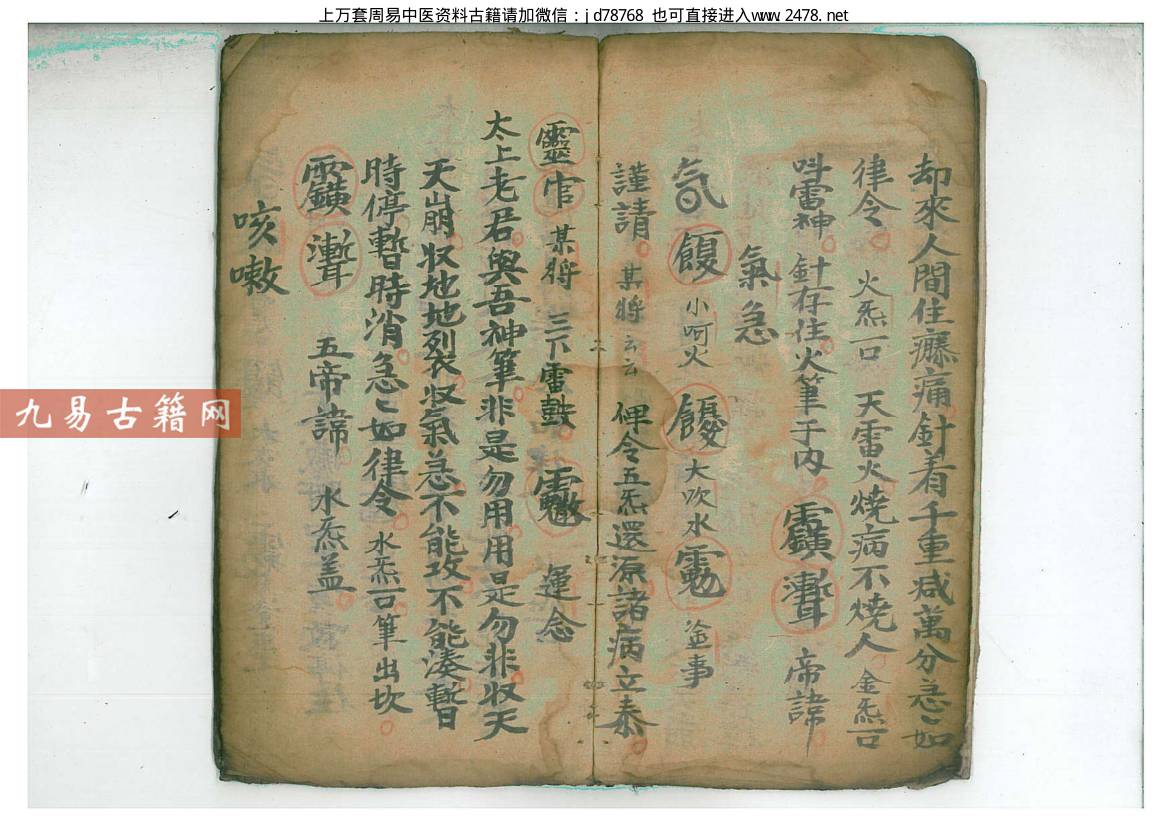 上万套周易中医资料古籍请加微信：jd78768 也可直接进入www.2478.net
却來人間住癰痛針着千重咸萬分急〻如
律令 火炁一口 天雷火燒病不燒人 金炁一口
雷神 針存住火筆于内 帝諱
氣急
氣 小呵火 大吹水 金事
謹請 某將云云 俾令五炁還源諸病立泰
靈官 某將 三下雷鼓 運念
太上老君與吾神筆非是勿用用是勿非收天
天崩收地地裂收氣急不能攻不能湊暫
時停暫時消急〻如律令 水炁一口筆出坎
五帝諱 水炁蓋
咳嗽
九易古籍网